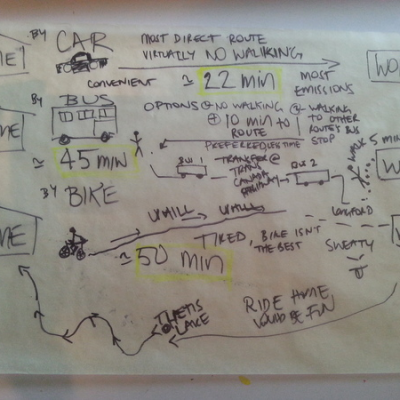 BY CAR
MOST DIRECT ROUTE
VIRTUALLY NO WALKING
CONVENIENT
≈ 22 MIN
MOST
EMISSIONS
BY
BUS
OPTIONS
NO WALKING
+ 10 MIN TO
ROUTE
PREFERRED
TIME
WALKING
TO OTHER
ROUTE BUS
STOP
≈ 45 MIN
BUS 1
TRANSFER @
TRANS
CANADA
BUS 2
WALK 5 MIN
LANGFORD
BY BIKE
HILL
TIRED, BIKE ISN'T
THE BEST
SWEATY
≈ 50 MIN
THETIS
LAKE
RIDE HOME
WOULD BE FUN